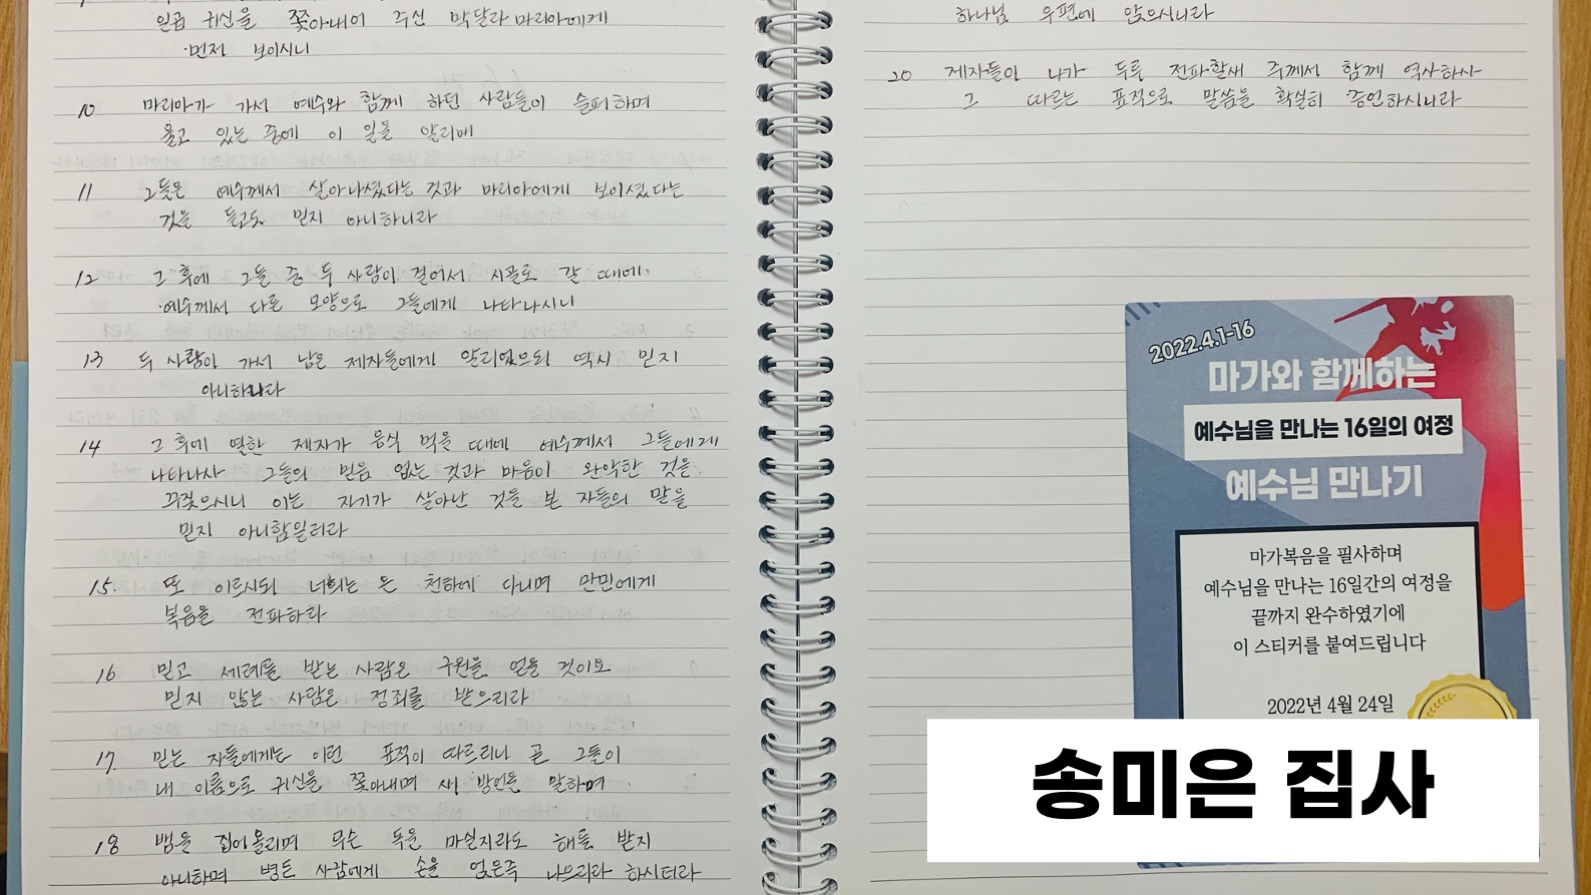 일곱 귀신을 쫓아내어 주신 막달라 마리아에게
먼저 보이시니
10 마리아가 가서 예수와 함께 하던 사람들이 슬퍼하며
울고 있는 중에 이 일을 알리매
11 그들은 예수께서 살아나셨다는 것과 마리아에게 보이셨다는
것을 듣고도 믿지 아니하니라
12 그 후에 그들 중 두 사람이 걸어서 시골로 갈 때에
예수께서 다른 모양으로 그들에게 나타나시니
13 두 사람이 가서 남은 제자들에게 알리었으되 역시 믿지
아니하니라
14 그 후에 열한 제자가 음식 먹을 때에 예수께서 그들에게
나타나사 그들의 믿음 없는 것과 마음이 완악한 것을
꾸짖으시니 이는 자기가 살아난 것을 본 자들의 말을
믿지 아니함일러라
15. 또 이르시되 너희는 온 천하에 다니며 만민에게
복음을 전파하라
16 믿고 세례를 받는 사람은 구원을 얻을 것이요
믿지 않는 사람은 정죄를 받으리라
17. 믿는 자들에게는 이런 표적이 따르리니 곧 그들이
내 이름으로 귀신을 쫓아내며 새 방언을 말하며
18 뱀을 집어올리며 무슨 독을 마실지라도 해를 받지
아니하며 병든 사람에게 손을 얹은즉 나으리라 하시더라
하나님 우편에 앉으시니라
20 제자들이 나가 두루 전파할새 주께서 함께 역사하사
그 따르는 표적으로 말씀을 확실히 증언하시니라
2022.4.1-16
마가와 함께하는
예수님을 만나는 16일의 여정
예수님 만나기
마가복음을 필사하며
예수님을 만나는 16일간의 여정을
끝까지 완수하였기에
이 스티커를 붙여드립니다
2022년 4월 24일
송미은 집사